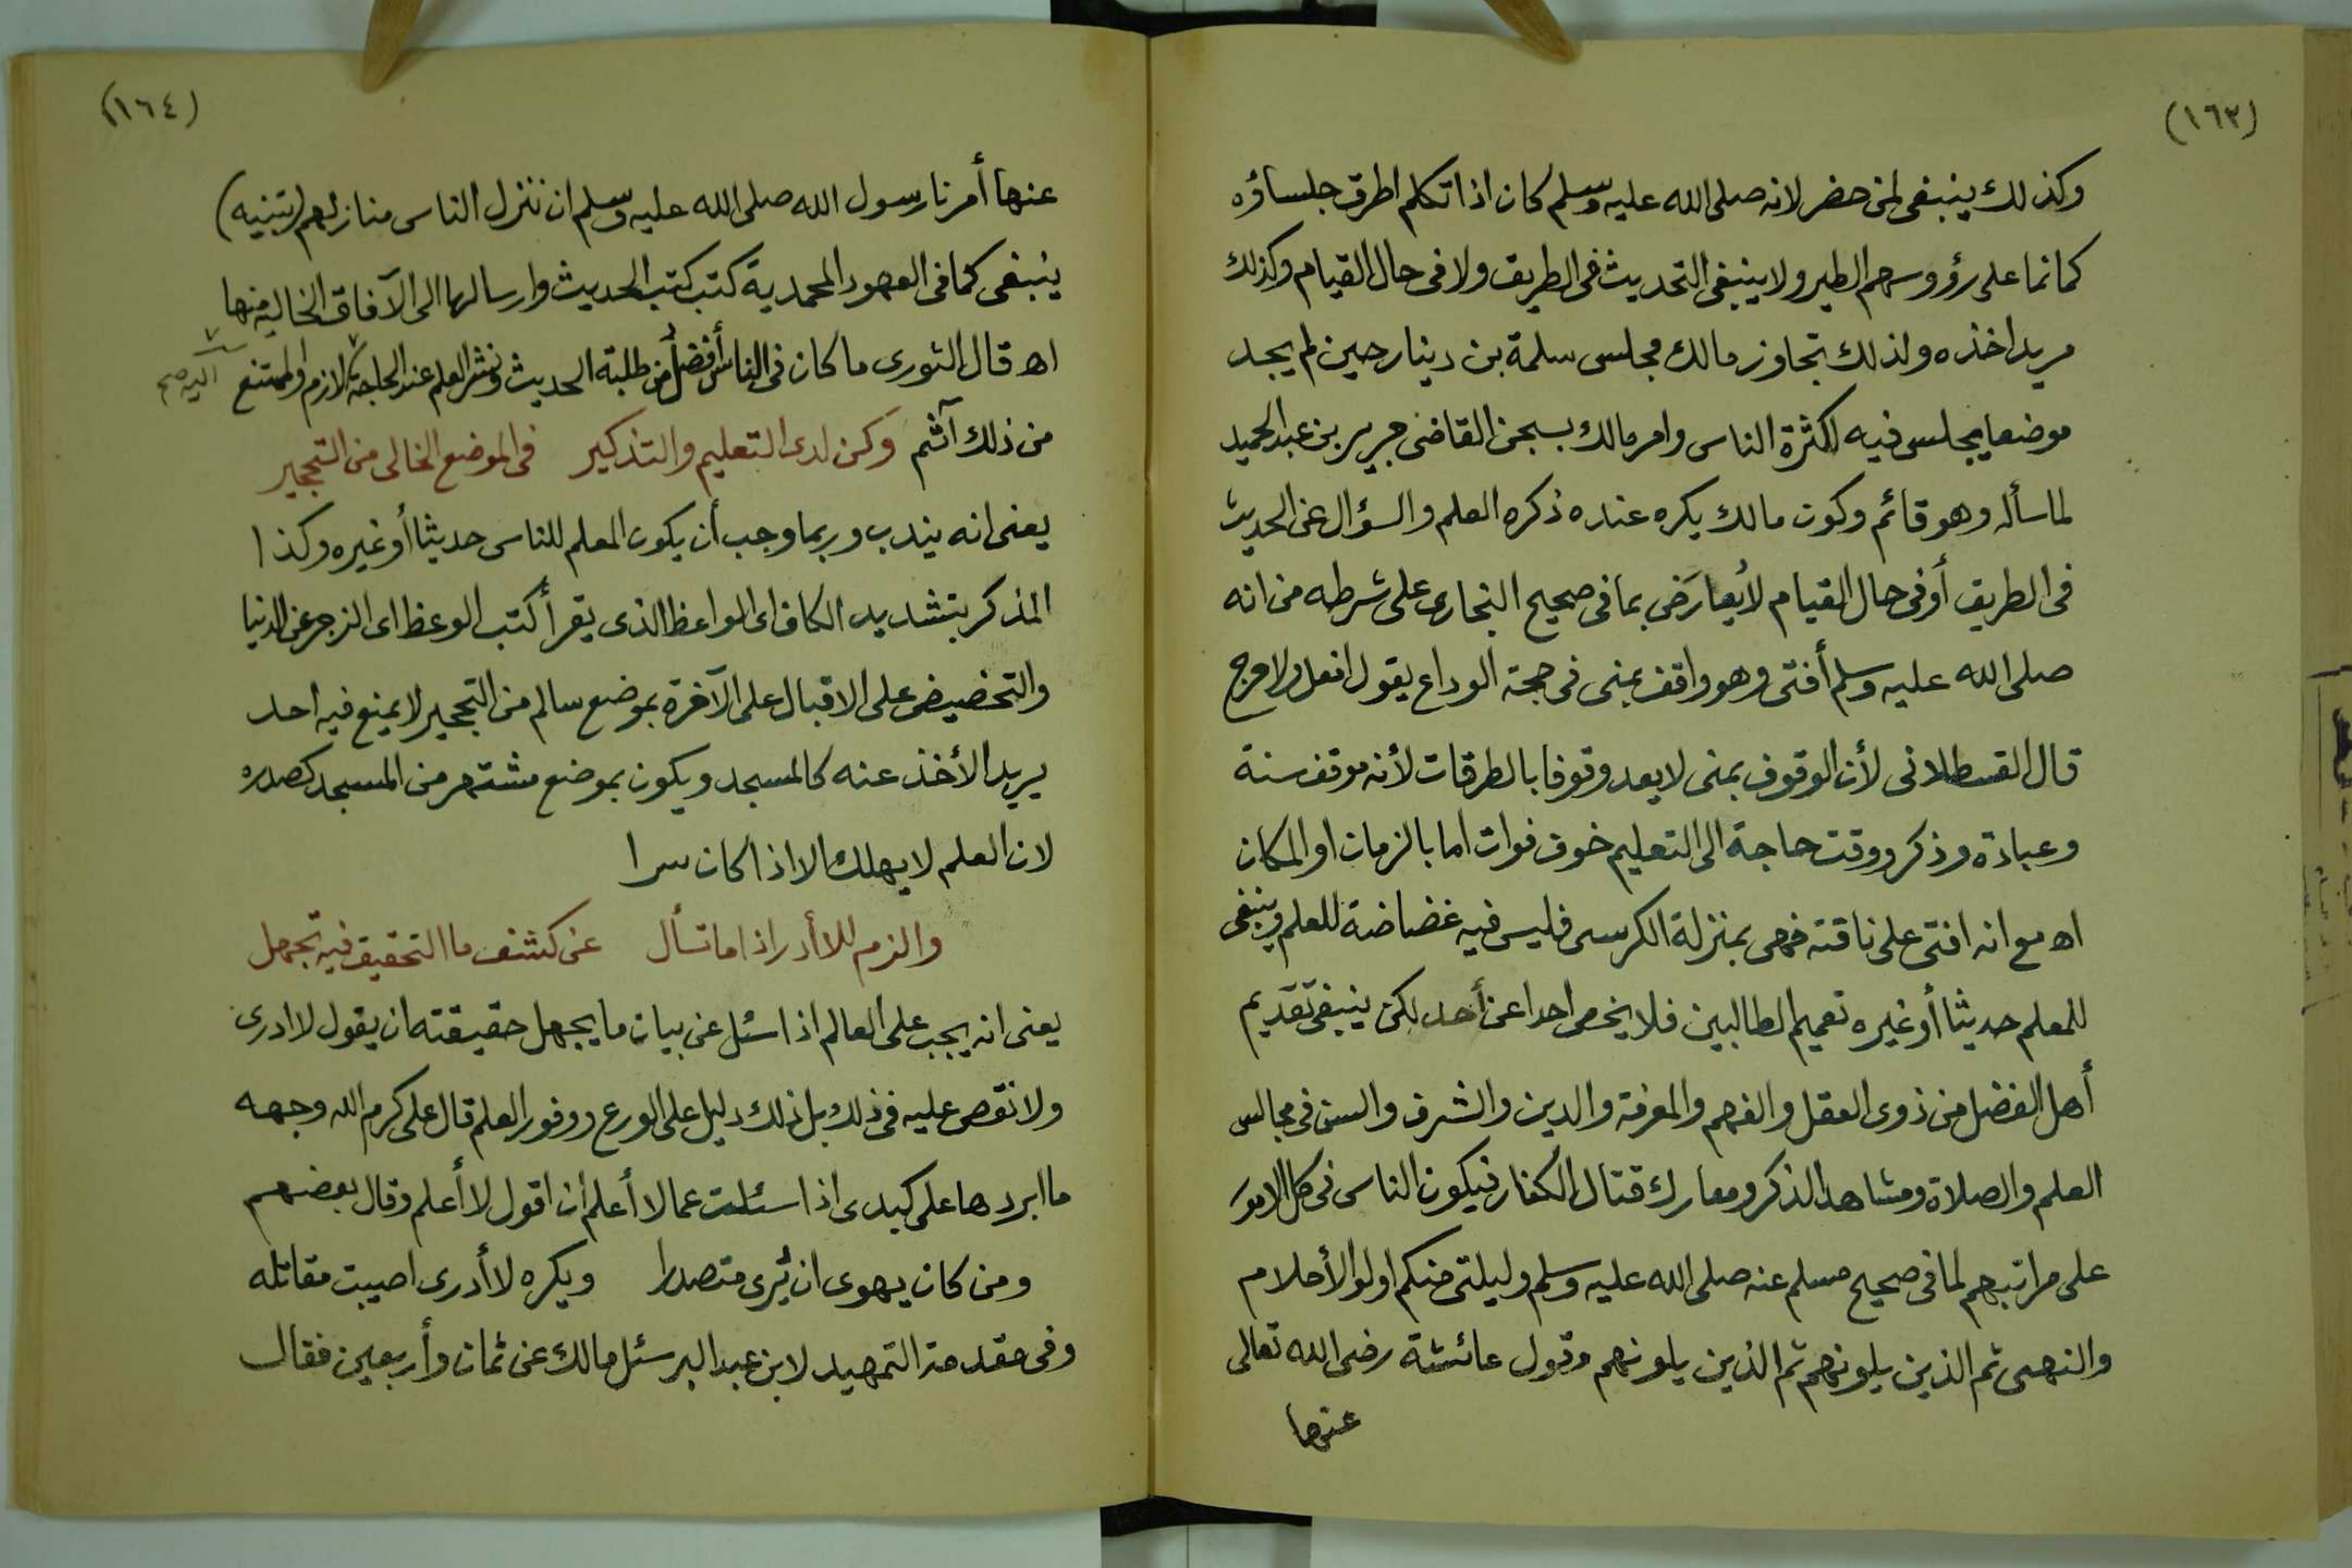 (١٦٣)
وكذلك ينبغى لمن حضر لانه صلى الله عليه وسلم كان اذا تكلم اطرق جلساؤه
كانما على رؤوسهم الطير ولا ينبغى التحديث فى الطريق ولا فى حال القيام وكذلك
مريد اخذه ولذلك تجاوز مالك مجلس سلمة بن دينار حين لم يجد
موضعا يجلس فيه لكثرة الناس وامر مالك بسجن القاضى جرير بن عبد الحميد
لما سأله وهو قائم وكون مالك يكره عنده ذكره العلم والسؤال عن الحديث
فى الطريق أو فى حال القيام لا يُعارَض بما فى صحيح البخارى على شرطه من انه
صلى الله عليه وسلم أفتى وهو واقف بمنى فى حجة الوداع يقول افعل ولا حرج
قال القسطلانى لأن الوقوف بمنى لا يعد وقوفا بالطرقات لأنه موقف سنة
وعبادة وذكر ووقت حاجة الى التعليم خوف فوات اما بالزمان او المكان
اه مع انه افتى على ناقته فهى بمنزلة الكرسى فليس فيه غضاضة للعلم وينبغى
للمعلم حديثا أو غيره تعميم الطالبين فلا يخص احدا عن أحد لكن ينبغى تقديم
أهل الفضل من ذوى العقل والفهم والمعرفة والدين والشرف والسن فى مجالس
العلم والصلاة ومشاهد الذكر ومعارك قتال الكفار فيكون الناس فى كل الامور
على مراتبهم لما فى صحيح مسلم عنه صلى الله عليه وسلم وليلتى منكم اولوا الأحلام
والنهى ثم الذين يلونهم ثم الذين يلونهم وقول عائشة رضى الله تعالى
عنها
(١٦٤)
عنها أمرنا رسول الله صلى الله عليه وسلم ان ننزل الناس منازلهم (تنبيه)
ينبغى كما فى العهود المحمدية كتب كتب الحديث وارسالها الى الآفاق الخالية منها
اه قال الثورى ما كان فى الناس أفضل من طلبة الحديث ونشر العلم عند الحاجة لازم والممتنع
اليه صح
من ذلك آثم وكن لدى التعليم والتذكير فى الموضع الخالى من التحجير
يعنى انه يندب وربما وجب أن يكون المعلم للناس حديثا أو غيره وكذا
المذكر بتشديد الكاف اى الواعظ الذى يقرأ كتب الوعظ اى الزجر عن الدنيا
والتخضيض على الاقبال على الآخرة بموضع سالم من التحجير لا يمنع فيه احد
يريد الأخذ عنه كالمسجد ويكون بموضع مشتهر من المسجد كصدره
لان العلم لا يهلك الا اذا كان سرا
والزم للا أدر اذا ما تسأل عن كشف ما التحقيق فيه تجهل
يعنى انه يجب على العالم اذا سئل عن بيان ما يجهل حقيقته ان يقول لا ادرى
ولا نقص عليه فى ذلك بل ذلك دليل على الورع ووفور العلم قال على كرم الله وجهه
ما ابردها على كبدى اذا سئلت عما لا أعلم ان اقول لا أعلم وقال بعضهم
ومن كان يهوى ان يُرى متصدرا ويكره لا أدرى اصيبت مقاتله
وفى مقدمة التمهيد لابن عبد البر سئل مالك عن ثمان وأربعين فقال